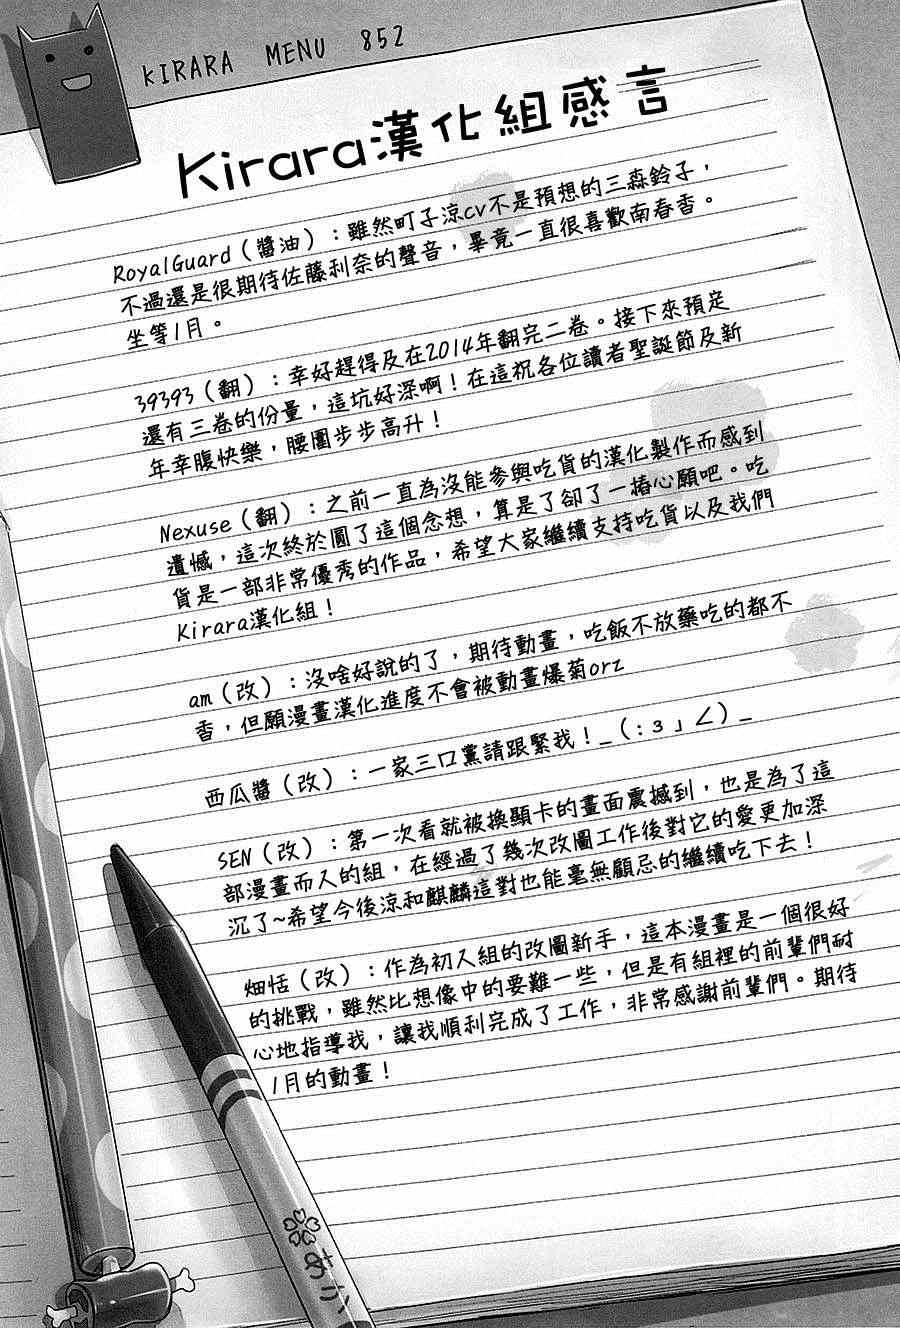 KIRARA MENU 852
Kirara漢化組感言
RoyalGuard（醬油）：雖然町子涼cv不是預想的三森鈴子，
不過還是很期待佐藤利奈的聲音，畢竟一直很喜歡南春香。
坐等1月。
39393（翻）：幸好趕得及在2014年翻完二卷。接下來預定
還有三卷的份量，這坑好深啊！在這祝各位讀者聖誕節及新
年幸腹快樂，腰圍步步高升！
Nexuse（翻）：之前一直為沒能參與吃貨的漢化製作而感到
遺憾，這次終於圓了這個念想，算是了卻了一樁心願吧。吃
貨是一部非常優秀的作品，希望大家繼續支持吃貨以及我們
Kirara漢化組！
am（改）：沒啥好說的了，期待動畫，吃飯不放藥吃的都不
香，但願漫畫漢化進度不會被動畫爆菊orz
西瓜醬（改）：一家三口黨請跟緊我！_（:з」∠）_
SEN（改）：第一次看就被換顯卡的畫面震撼到，也是為了這
部漫畫而入的組，在經過了幾次改圖工作後對它的愛更加深
沉了~希望今後涼和麒麟這對也能毫無顧忌的繼續吃下去！
畑恬（改）：作為初入組的改圖新手，這本漫畫是一個很好
的挑戰，雖然比想像中的要難一些，但是有組裡的前輩們耐
心地指導我，讓我順利完成了工作，非常感謝前輩們。期待
1月的動畫！